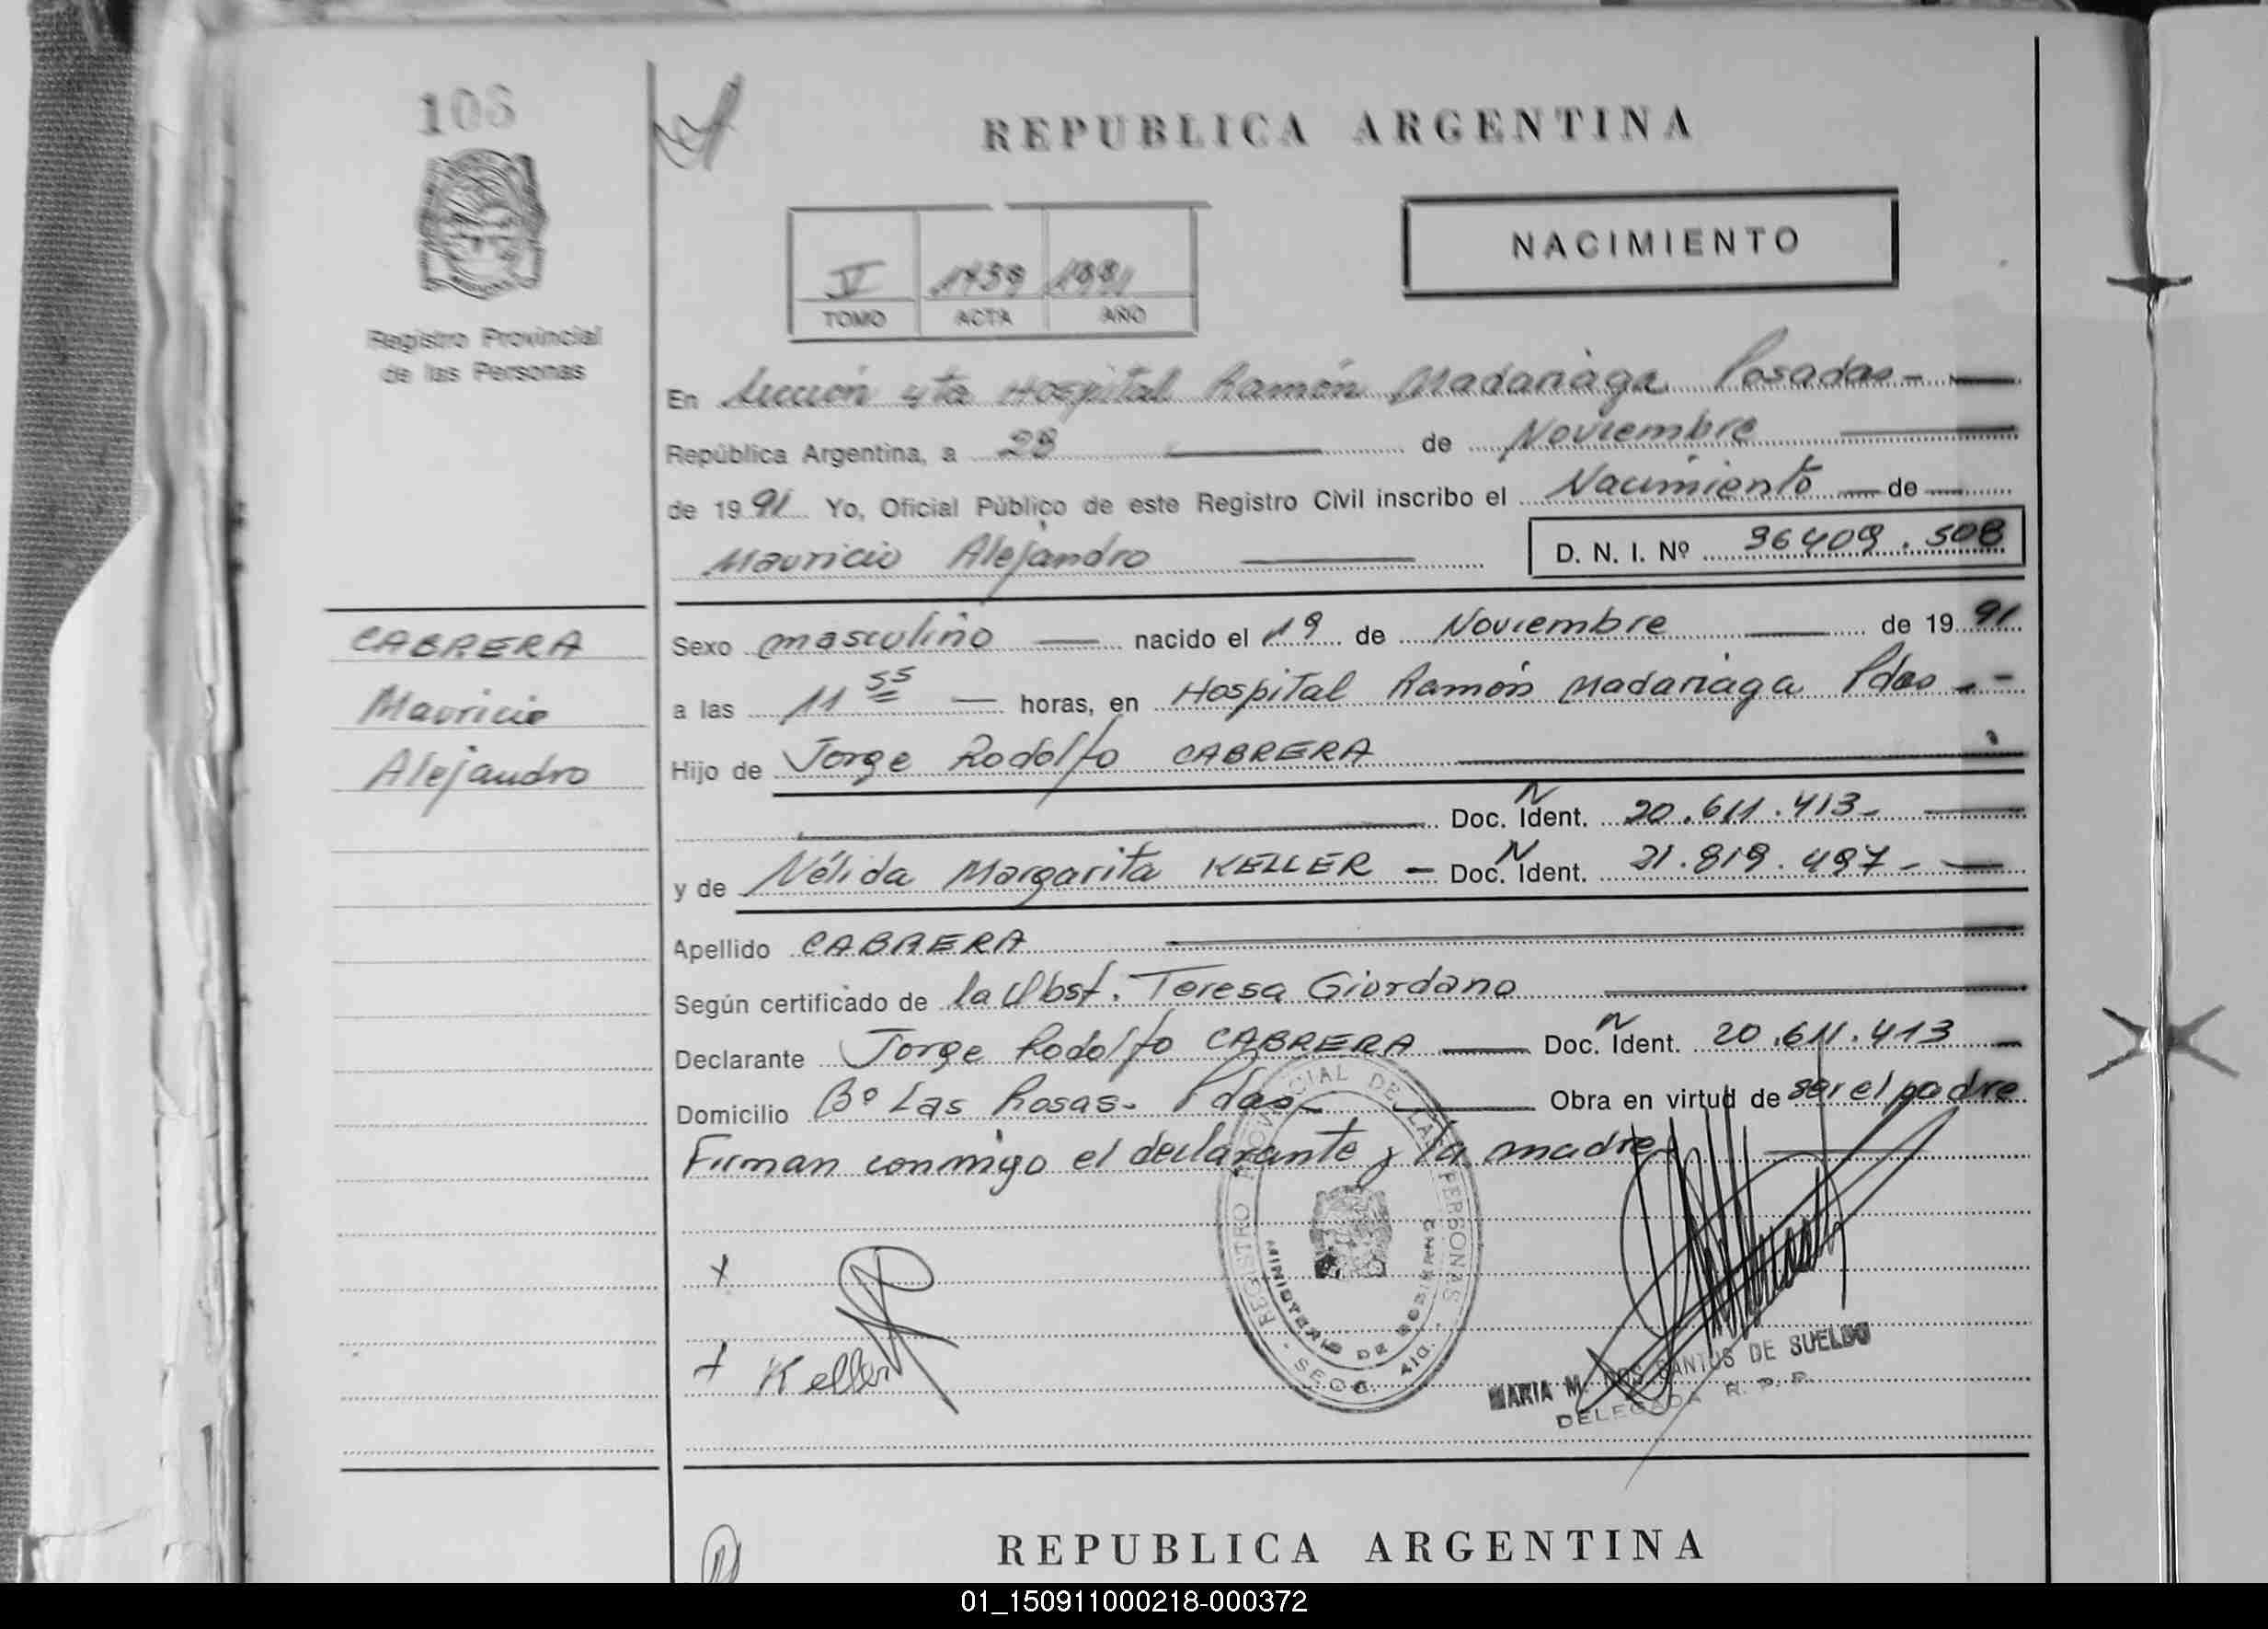 106
REPUBLICA ARGENTINA
NACIMIENTO
V 1439 1991
TOMO ACTA AÑO
Registro Provincial
de las Personas
En Sección 4ta Hospital Ramón Madariaga Posadas-
República Argentina, a 28 de Noviembre
de 1991 Yo, Oficial Público de este Registro Civil inscribo el Nacimiento de
Mauricio Alejandro D. N. I. Nº 36409.508
CABRERA
Mauricio
Alejandro
Sexo masculino nacido el 19 de Noviembre de 1991
a las 11 55 horas, en Hospital Ramón Madariaga Pdas -
Hijo de Jorge Rodolfo CABRERA
Doc. N Ident. 20.611.413-
y de Nélida Margarita KELLER - Doc. N Ident. 21.819.497-
Apellido CABRERA
Según certificado de la Obst. Teresa Giordano
Declarante Jorge Rodolfo CABRERA Doc. N Ident. 20.611.413
Domicilio Bº Las Rosas. Pdas- Obra en virtud de ser el padre
Firman conmigo el declarante y la madre
REGISTRO PROVINCIAL DE LAS PERSONAS
MINISTERIO DE GOBIERNO
Keller
MARIA M. DOS SANTOS DE SUELDO
DELEGADA R. P. P.
REPUBLICA ARGENTINA
01_150911000218-000372